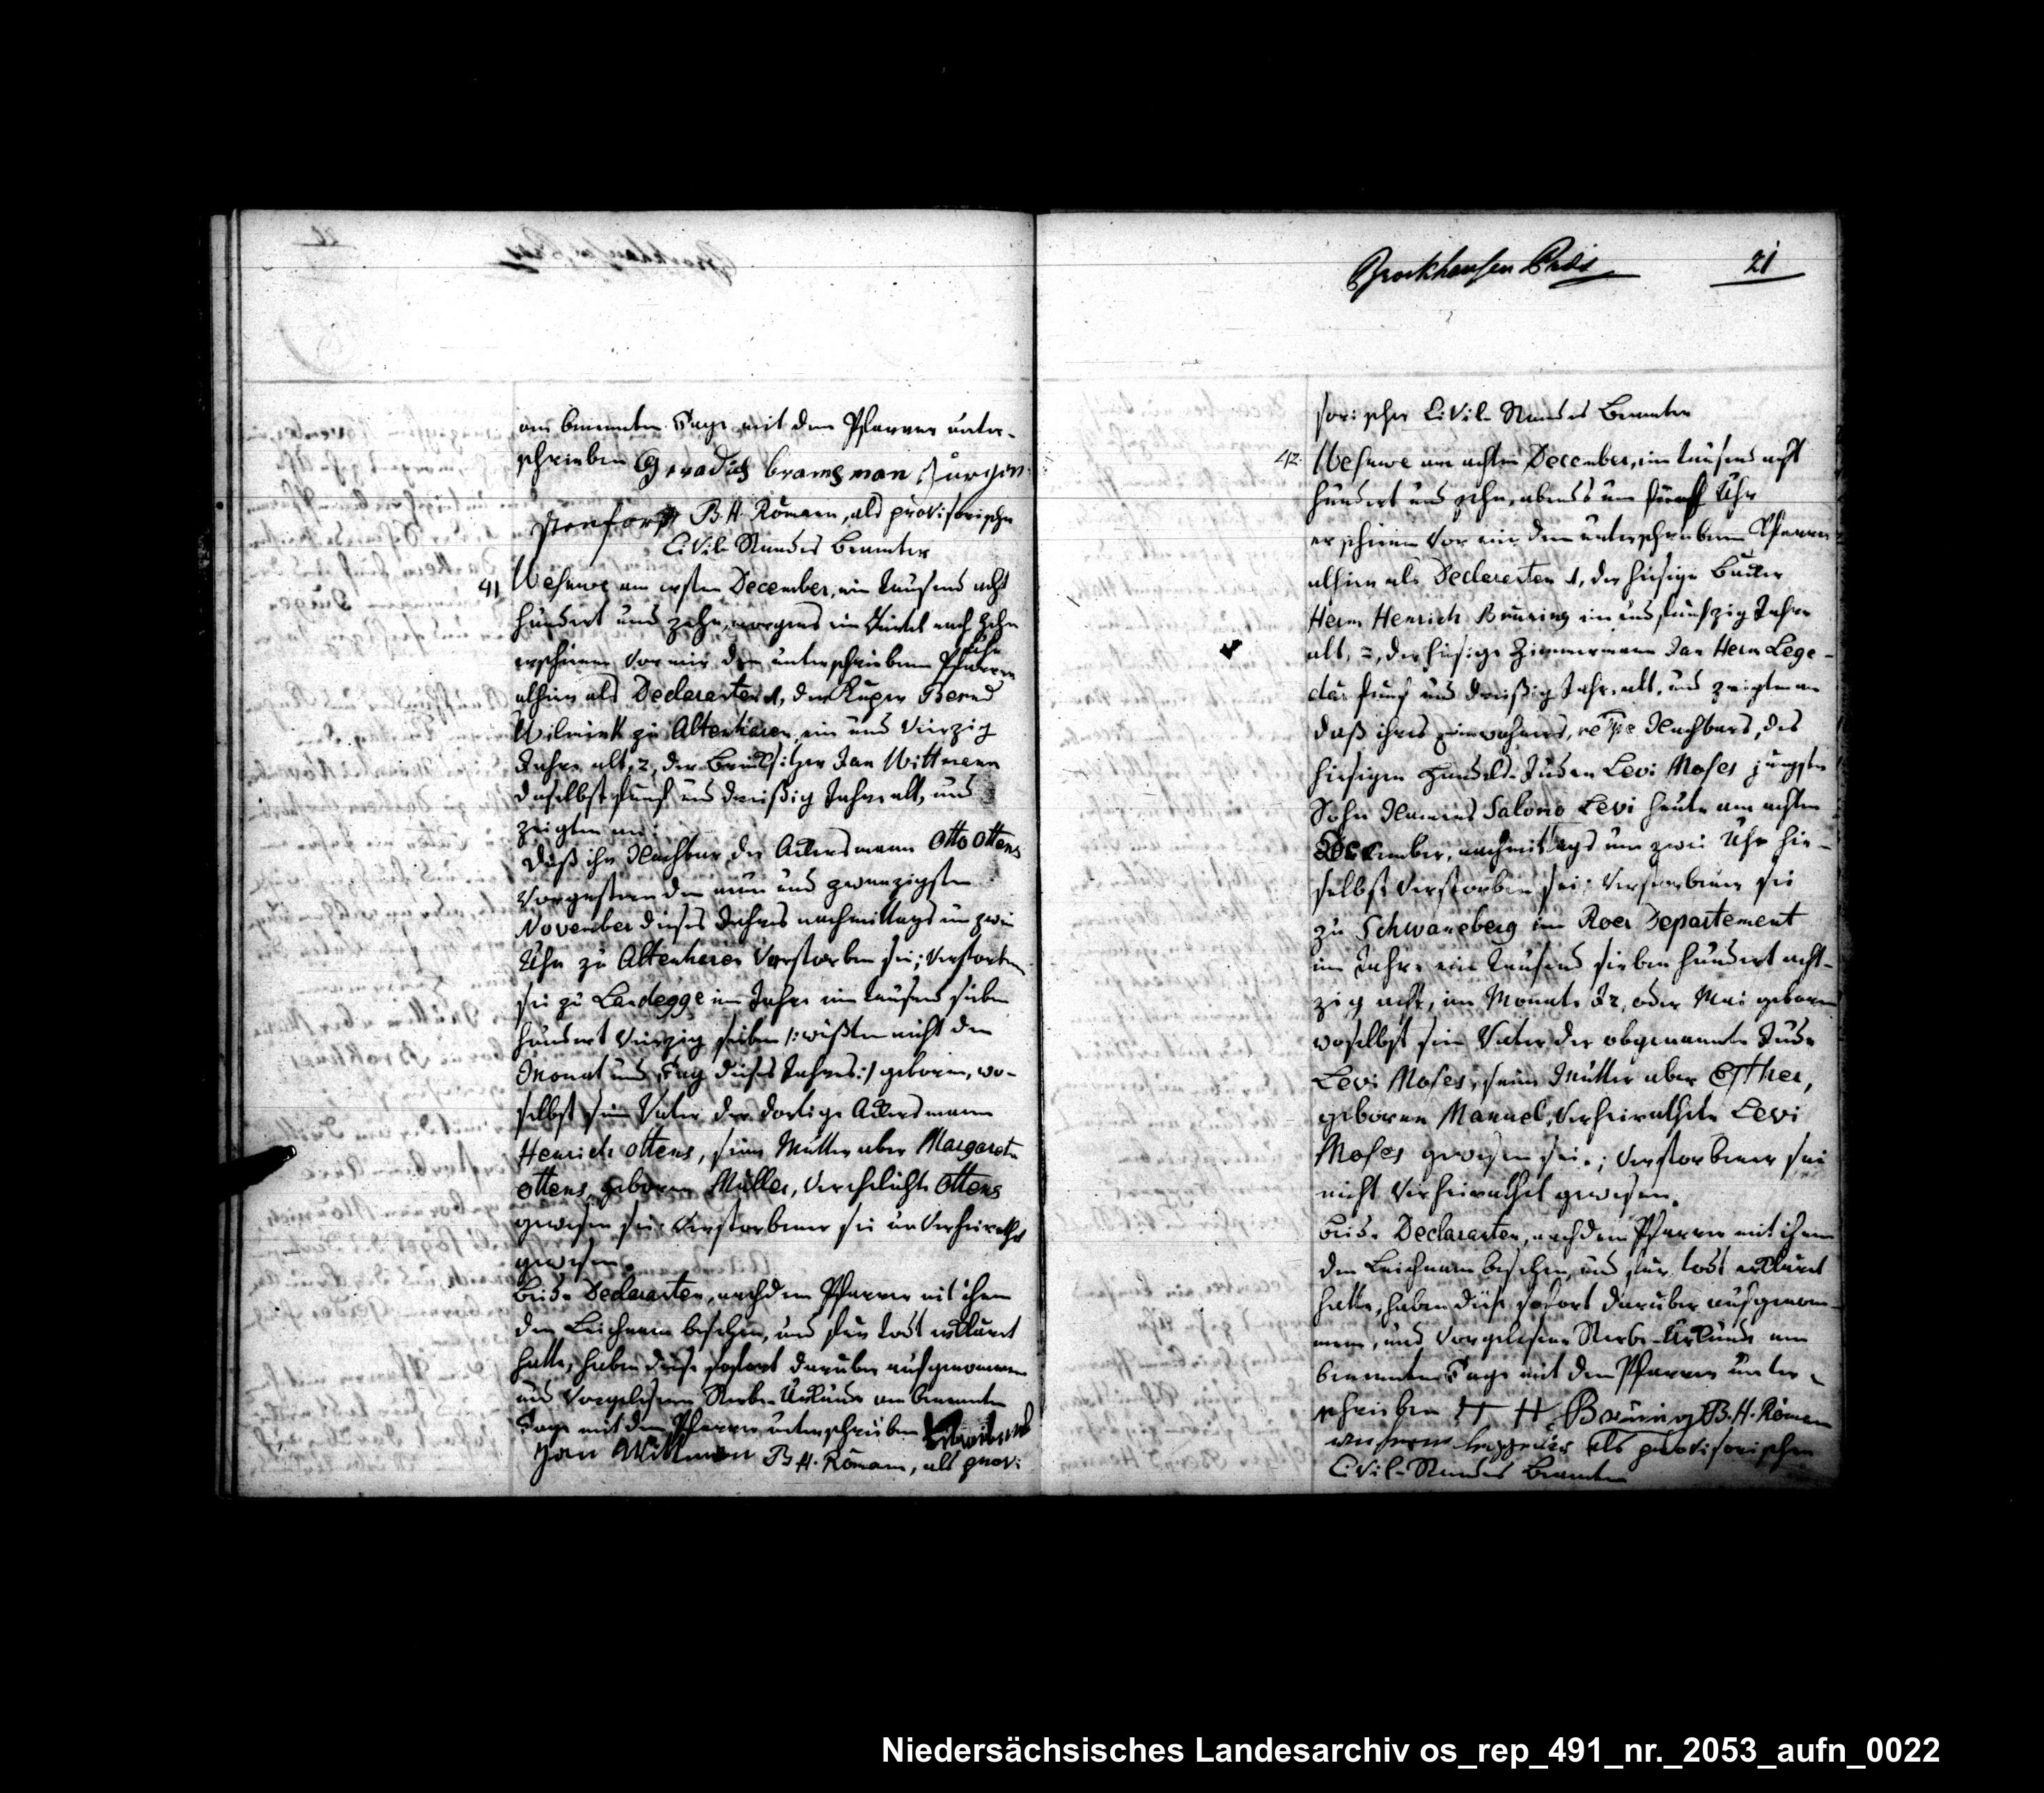 am benannten Tage mit dem Pfarrer unter-
schrieben Geradus bramsman Jurgen
B. H. Römann, als provisorischer
Civil-Standes Beamter
41 Wesuwe am ersten December, ein tausend acht
hundert und zehn, morgens ein Viertel nach zehn
Uhr
erschienen vor mir dem unterschriebenen Pfarrer
alhier als Declaranten 1, der Kuper Bernd
Wilmink zu Altenharen, ein und vierzig
Jahre alt, 2, der Brinksitzer Jan Wittmann
daselbst fünf und dreißig Jahre alt, und
zeigten an:
daß ihr Nachbar der Ackersmann Otto Ottens
vorgestern den neun und zwanzigsten
November dieses Jahres nachmittags um zwei
Uhr zu Altenharen verstorben sei; Verstorbener
sei zu Landegge im Jahre ein tausend sieben
hundert vierzig sieben /: wißten nicht den
Monat und Tag dieses Jahres :/ geboren, wo-
selbst sein Vater der dortige Ackersmann
Henrich Ottens, seine Mutter aber Margareta
Ottens, geborene Müller, verehelichte Ottens
gewesen sei. Verstorbener sei unverheirathet
gewesen.
Beide Declaranten, nachdem Pfarrer mit ihnen
den Leichnam besehen, und für todt erklärt
hatte, haben diese sofort darüber aufgenommene
und vorgelesene Sterbe-Urkunde am benannten
Tage mit dem Pfarrer unterschrieben
Jan Wittman B H. Römann, als provi-
Brockhausen Präs 21
sorischer Civil-Standes Beamter
42. Wesuwe am achten December, ein tausend acht
hundert und zehn, abends um fünf Uhr
erschienen vor mir dem unterschriebenen Pfarrer
alhier als Declaranten 1, der hiesige Bäcker
Herm Henrich Brüning ein und fünfzig Jahre
alt, 2, der hiesige Zimmermann Jan Herm Lege-
där fünf und dreißig Jahre alt, und zeigten an
daß ihres Einwohners, respe Nachbars, des
hiesigen Handels-Juden Levi Moses jüngster
Sohn Namens Salomo Levi heute am achten
December, nachmittags um zwei Uhr hie-
selbst verstorben sei; Verstorbener sei
zu Schwaneberg im Roer Departement
im Jahre ein tausend sieben hundert acht-
zig acht, im Monate oder Mai geboren
woselbst sein Vater der obgenannte Jude
Levi Moses, seine Mutter aber Esther,
geborene Manuel, verheirathete Levi
Moses gewesen sei.; Verstorbener sei
nicht verheirathet gewesen.
Beide Declaranten, nachdem Pfarrer mit ihnen
den Leichnam besehen, und für todt erklärt
hatte, haben diese sofort darüber aufgenom-
mene, und vorgelesene Sterbe-Urkunde am
benannten Tage mit dem Pfarrer unter-
schrieben H H Brüning B. H. Römann
als provisorischer
Civil-Standes Beamter
Niedersächsisches Landesarchiv os_rep_491_nr._2053_aufn_0022